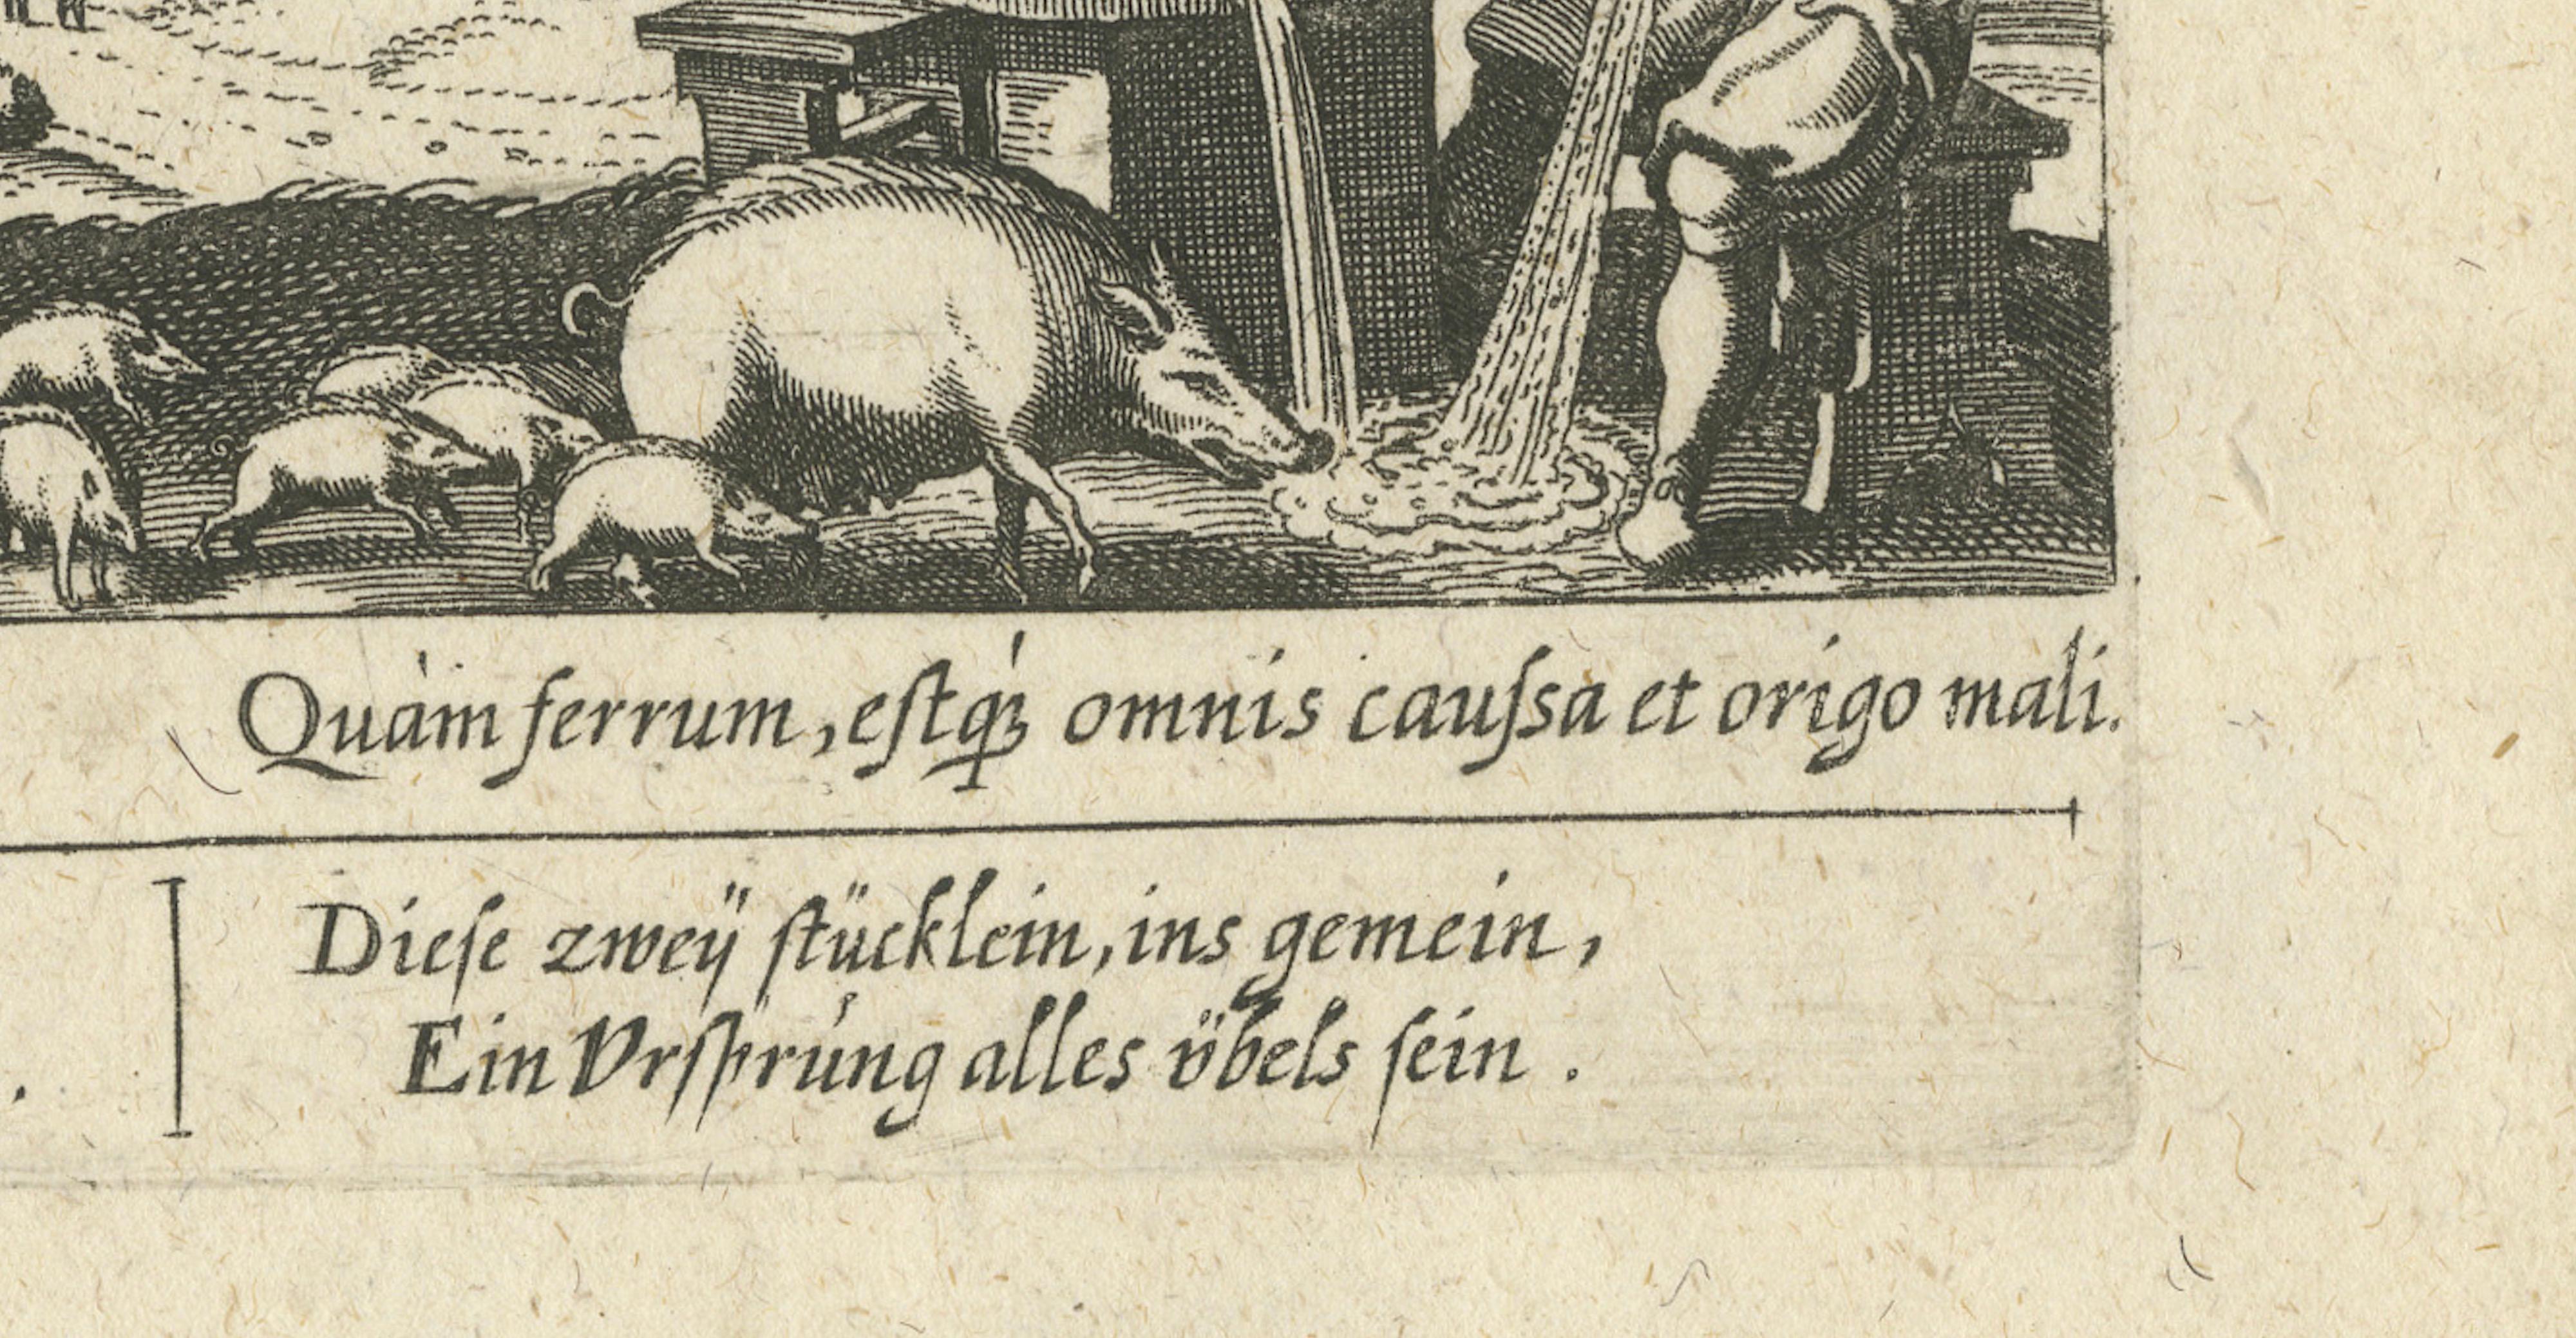 Quàm ferrum, eſtq́ꝫ omnis cauſsa et origo mali.
Dieſe zweÿ ſtücklein, ins gemein,
Ein Vrſprúng alles v̈bels ſein.